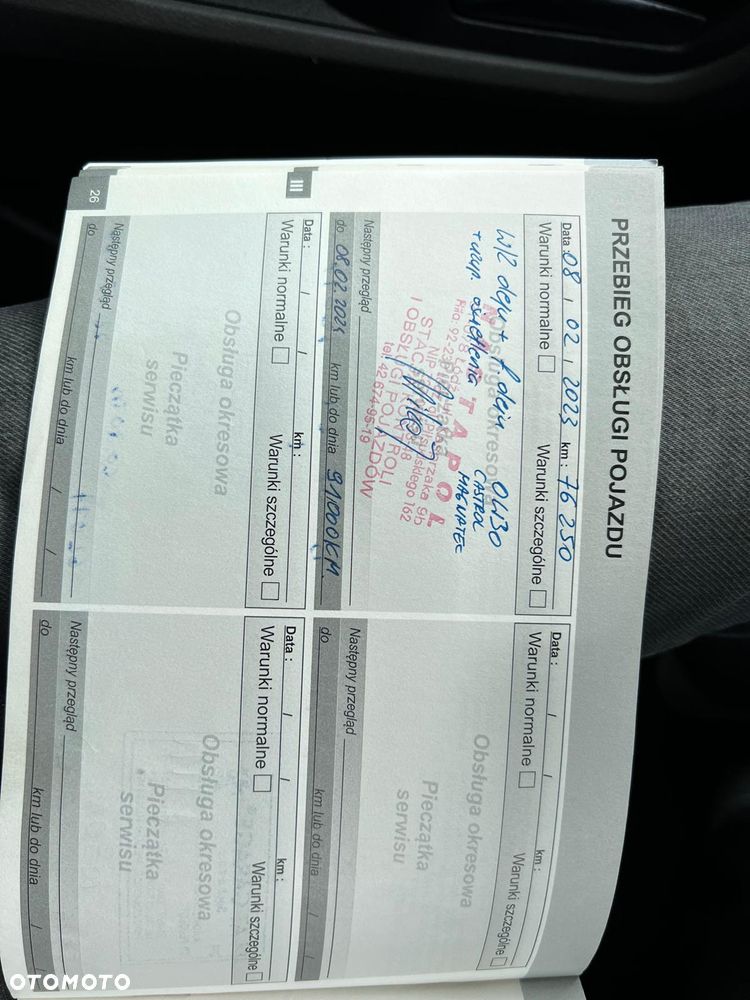 PRZEBIEG OBSŁUGI POJAZDU
Data : 08 / 02 / 2023 km : 76 250
Warunki normalne Warunki szczególne
Obsługa okresowa
olej 0W30
CASTROL
MAGNATEC
STAPOL
STACJA KONTROLI
I OBSŁUGI POJAZDÓW
tel. 42 674-95-19
Następny przegląd
do 08.02.2025 km lub do dnia 91000KM
Data : / / km :
Warunki normalne Warunki szczególne
Obsługa okresowa
Pieczątka
serwisu
Następny przegląd
do km lub do dnia / /
Data : / / km :
Warunki normalne Warunki szczególne
Obsługa okresowa
Pieczątka
serwisu
Następny przegląd
do km lub do dnia / /
Data : / / km :
Warunki normalne Warunki szczególne
Obsługa okresowa
Pieczątka
serwisu
Następny przegląd
do km lub do dnia / /
III
26
OTOMOTO